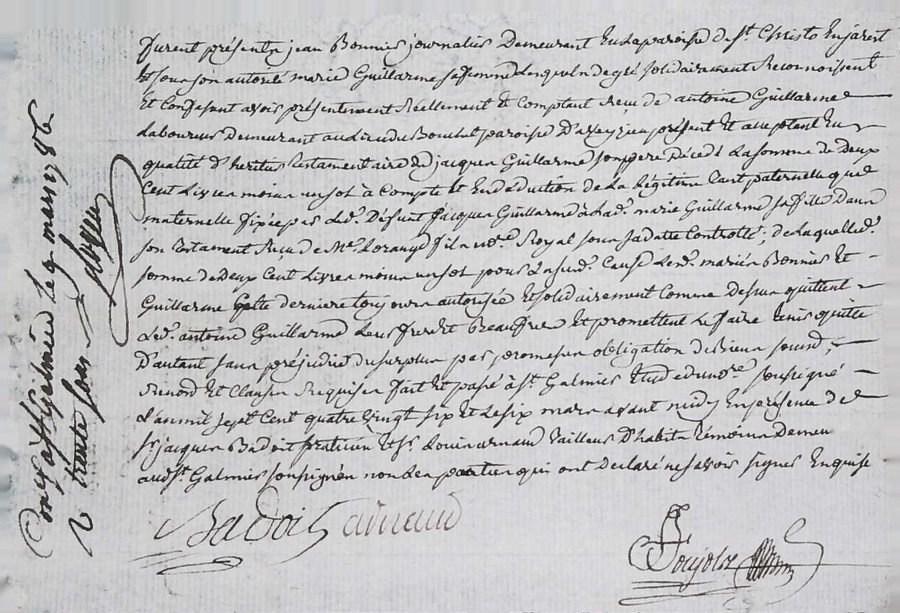 furent présents jean Bonnier journalier Demeurant En la paroisse de St. Christo En jarest
Et sous son autorité marie Guillarme sa femme Lesquels de gré solidairement Reconnoissent
Et Confessent avoir présentement Réellement Et Comptant Reçu de antoine Guillarme
Laboureur Demeurant au lieu du Bouchet paroisse D'aveyzieu présent Et acceptant En
qualité d'heritier testamentaire de jacques Guillarme son pere Décédé La somme de Deux
Cent Livres moins un sol à Compte Et En déduction de La Légitime tant paternelle que
maternelle fixée par Led. Défunt jacques Guillarme à Lad. marie Guillarme sa fille Dans
son testament Reçu de Me. Royal sous sa datte Controllé, de Laquelle d.
somme de Deux Cent Livres moins un sol pour La sud. Cause Led. mariés Bonnier Et
Guillarme Cette derniere toujours autorisée Et solidairement Comme Dessus quittent
Led. antoine Guillarme Leur frere Et Beaufrere Et promettent Le faire tenir quitte
D'autant sans préjudice du surplus par promesse obligation de Biens
Et Clauses Requises fait Et passé à St. Galmier Etude du nre. soussigné
L'an mil sept Cent quatre vingt six Et Le six mars avant midy En présence de
Sr. jacques Badoit praticien Et Sr. Louis arnaud tailleur D'habits témoins Demeu
aud. St. Galmier soussignés non Les parties qui ont Déclaré ne savoir signer Enquise
Badoit arnaud
Conlé à St Galmier le 9 mars 1786
trente sous